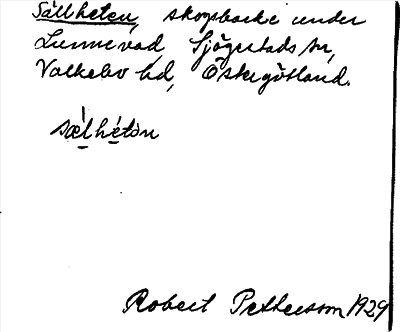 Sällheten, skogsbacke under
Lunnevad, Sjögestads sn,
Valkebo hd, Östergötland.
sælhétȯn
Robert Pettersson 1929